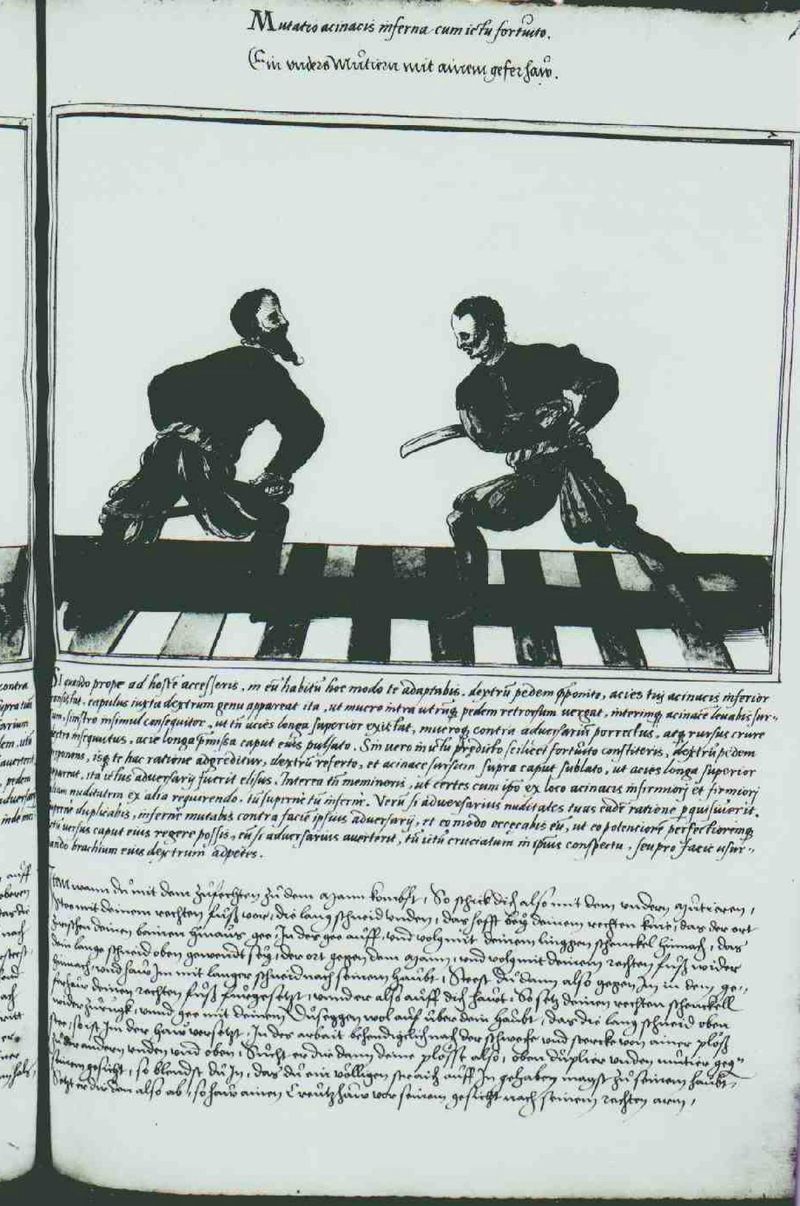 Mutatio acinacis inferna cum ictu fortuito.
Ein unders Mutiern mit ainem gefer haw.
contra
Si quando prope ad hostē accesseris, in eū habitū hoc modo te adaptabis, dextrū pedem pponito, acies tui acinacis inferior
consistat, capulus iuxta dextrum genu appareat ita, ut mucro intra utrūq pedem retrorsum vergat, interimq acinacē levabis sur-
sum, sinistro insimul consequitor, ut tū acies longa superior existat, mucroq contra adversariū porrectus, atq rursus crure
dextro insequutus, acie longa pmissa caput eius pulsato. Sin vero in ictu predicto scilicet fortuito constiteris, dextrū pedem
pponens, isq te hac ratione adgreditur, dextrū referto, et acinace sursum supra caput sublato, ut acies longa superior
appareat, ita ictus adversarij fuerit elisus. Interea tn memineris, ut certes cum ipso ex loco acinacis infirmiori et firmiori
nuditatem ex alia requirendo, tū superne tū inferne. Verū si adversarius nuditates tuas eadē ratione pquisiverit,
superne duplicabis, inferne mutabis contra faciē ipsius adversarij, et eo modo occecabis eū, ut eo potentiorē perfectioremq
ictū versus caput eius regere possis, eū si adversarius averterit, tū ictū cruciatum in ipsius conspectu, seu pro facie usur-
pando brachium eius dextrum adpetes.
Item wann dū mit dem zūfechten zū dem mann kombst, So schick dich also mit dem undern mutieren,
Stee mit deinem rechten fūsß vor, die lang schneid unden, das hefft bey deinem rechten knie, das der ort
zwischen deinen bainen hinaus gee, In des gee auff, und volg mit deinem linggen schenckel hinnach, das
dein lange schneid oben gewendt sey, der ort gegen dem mann, und volg mit deinem rechten fūsß wider
hinnach, und haw Im mit langer schneid nach seinem haubt, Steest dū dann also gegen Im in dem ge-
ferhaw deinen rechten fūsß fūrgesetzt, unnd er also auff dich hawt, So setz deinen rechten schenckell
wider zūrūgk, unnd gee mit deiner Dūseggen wol auf über dein haubt, das die lang schneid oben
stee, so ist Im der haw versetzt, In des arbait behendigclich nach der schwech und sterck von ainer plösß
zū der andern unden und oben, Sūcht er dir dann deine plösse also, oben dūplier unden mutier geg-
seinem gesicht, so blendst dū In, das dū ein volligen straich auff In gehaben magst zū seinem haubt,
Setzt er dir den also ab, so haw ainen Creutzhaw vor seinem gesicht nach seinem rechten arm,